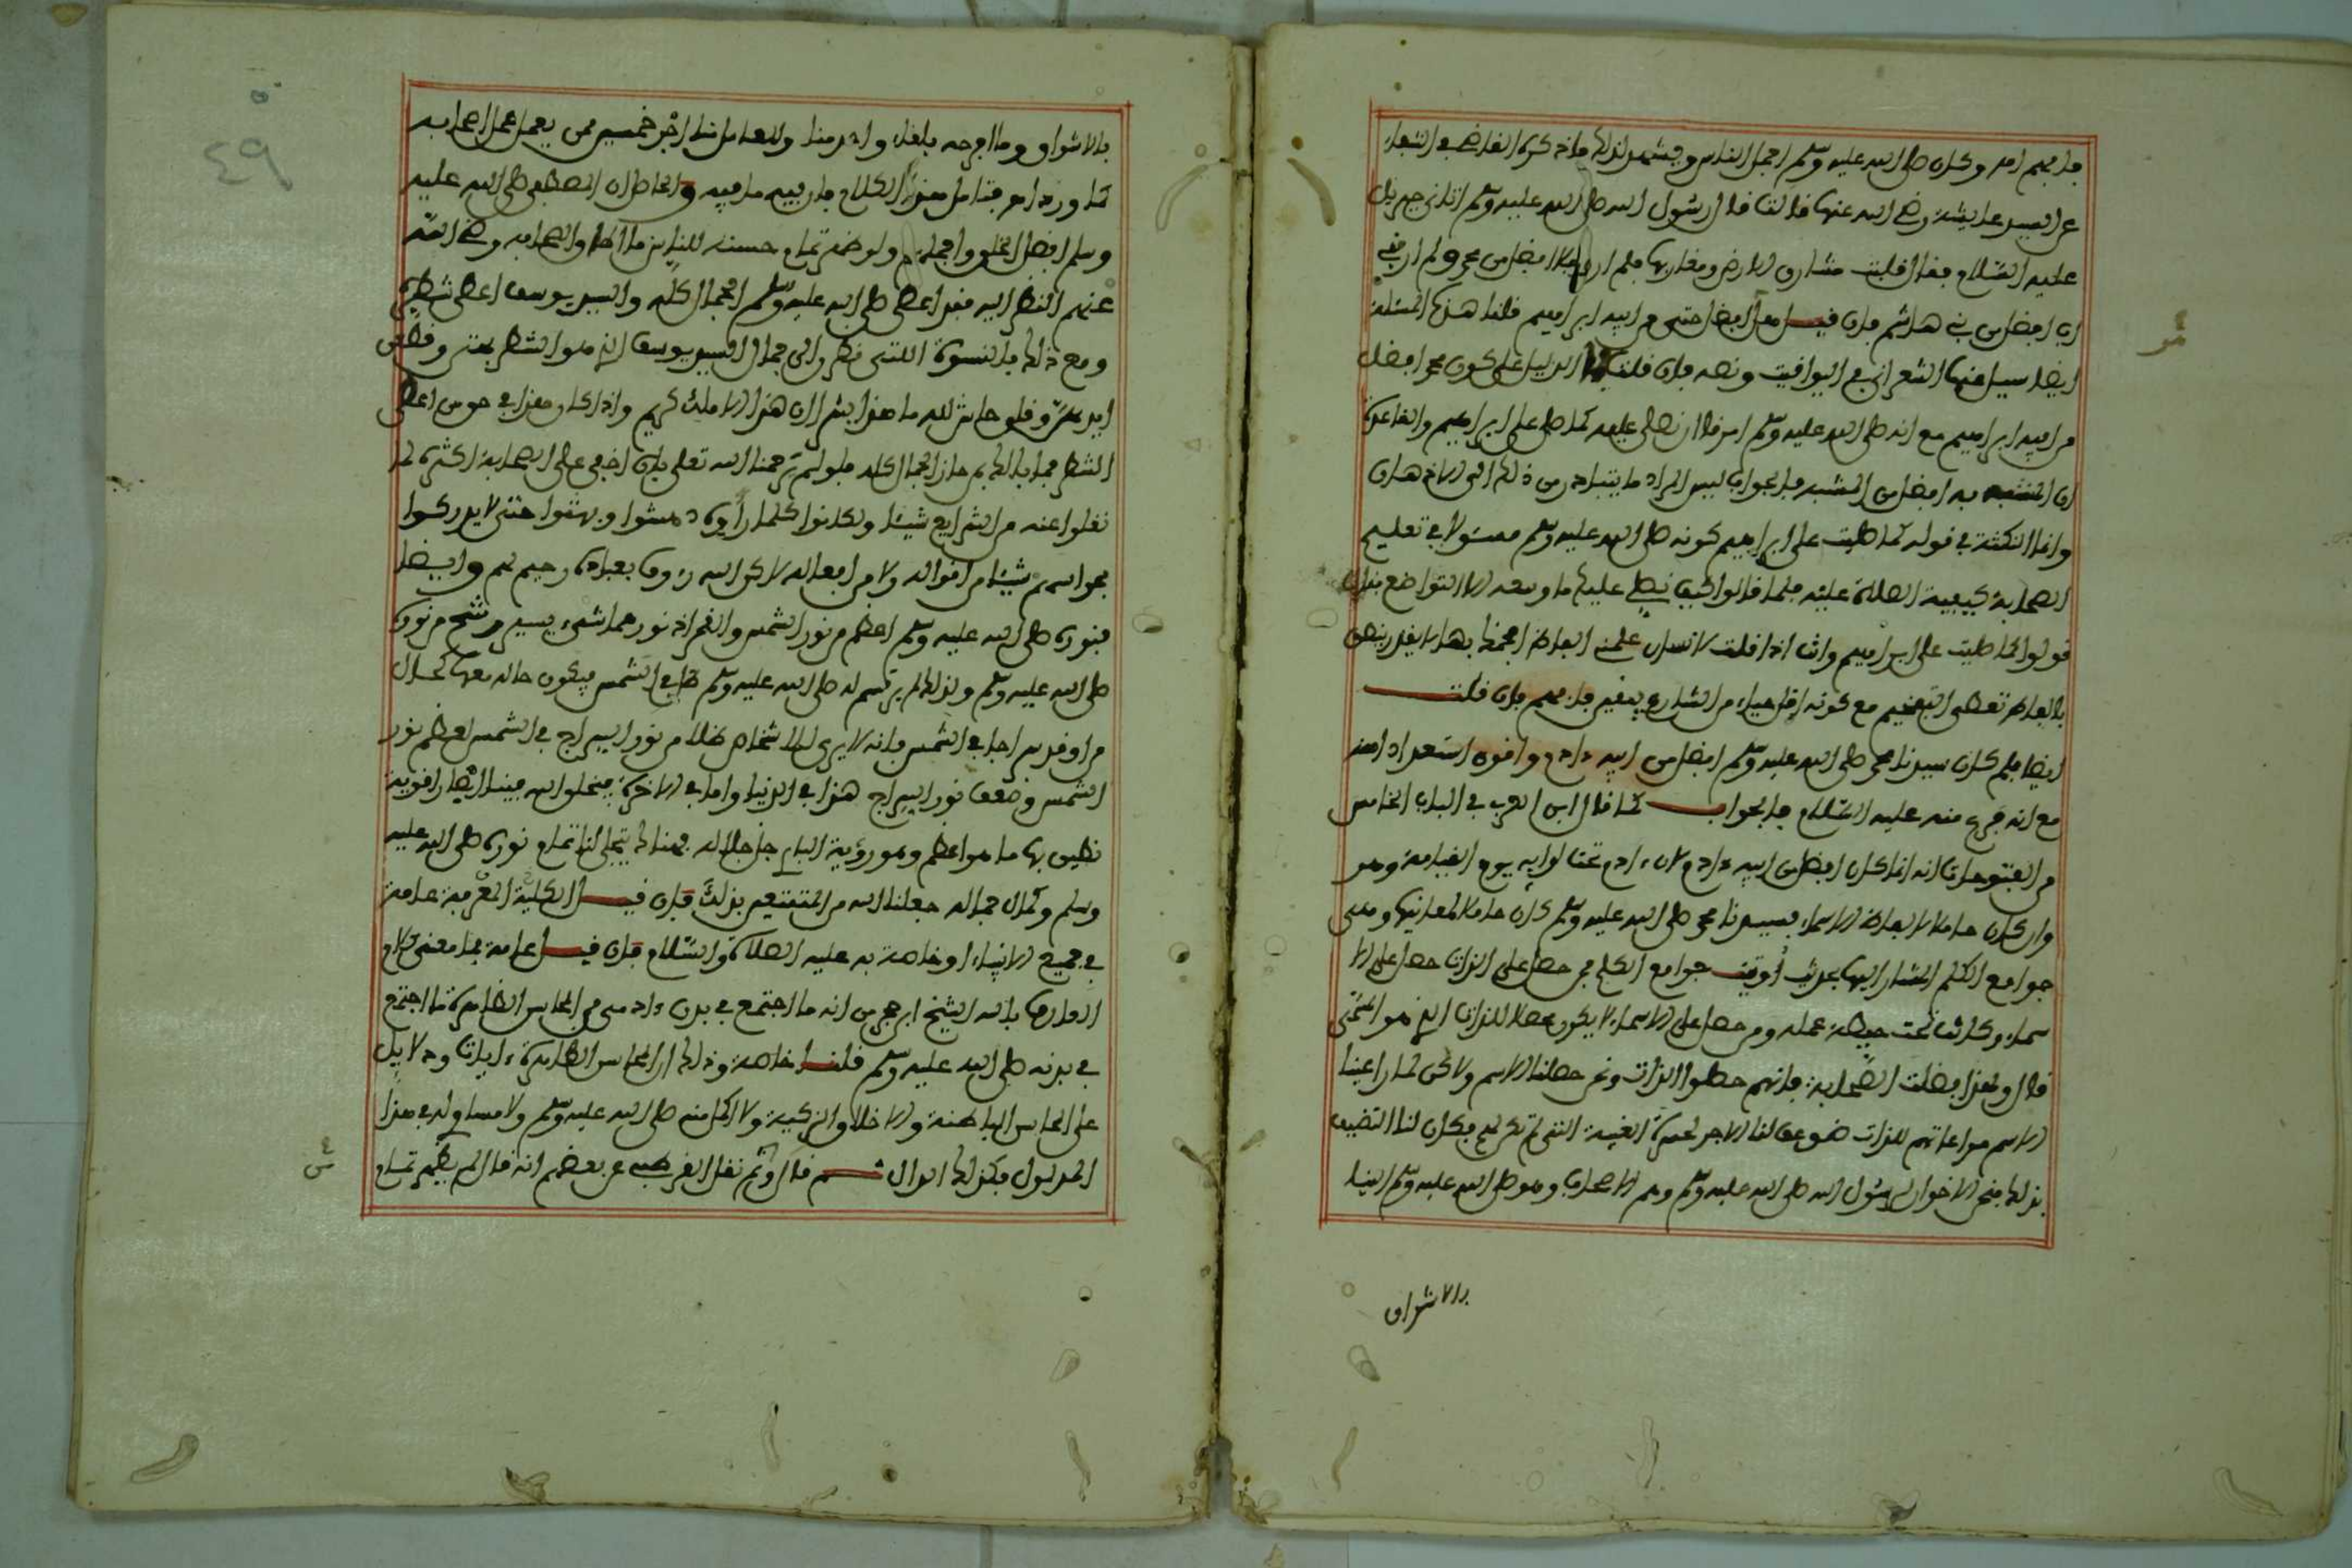 فافهم اهـ وكان صلى الله عليه وسلم اجمل الناس ويشهد لذلك ما ذكره القاضي في الشفاء
عن السيدة عايشة رضي الله عنها قالت قال رسول الله صلى الله عليه وسلم اتاني جبريل
عليه السلام فقال قلبت مشارق الارض ومغاربها فلم ار رجلا افضل من محمد ولم ار بني
اب افضل من بني هاشم فان قيل هل هو افضل حتى من ابيه ابراهيم قلنا هذه المسئلة
ايضا سيل عنها الشعراني في اليواقيت ونصه فان قلت الدليل على كون محمد افضل
من ابيه ابراهيم مع انه صلى الله عليه وسلم امرنا ان نصلي عليه كما صلى على ابراهيم والقاعدة
ان المشبه به افضل من المشبه فالجواب ليس المراد ما يتبادر من ذلك الى الاذهان
وانما النكتة في قوله كما صليت على ابراهيم كونه صلى الله عليه وسلم مسئولا في تعليم
الصحابة كيفية الصلاة عليه فلما قالوا كيف نصلي عليك ما وسعه الا التواضع فقال
قولوا كما صليت على ابراهيم وانت اذا قلت لانسان علمني الفاظ افخمك بها لا يقدر ينطق
بالفاظ تعطي التفخيم مع كونه اقل حياء من الشارع بيقين فافهم فان قلت
ايضا فلم كان سيدنا محمد صلى الله عليه وسلم افضل من ابيه ءادم واقوى استعدادا منه
مع انه فرع منه عليه السلام فالجواب كما قال ابن العربي في الباب الخامس
من الفتوحات انه انما كان افضل من ابيه ءادم لان ءادم تحت لوايه يوم القيامة وهو
وان كان حاملا لالفاظ الاسماء فسيدنا محمد صلى الله عليه وسلم كان حاملا لمعانيها وهي
جوامع الكلم المشار اليها بحديث أوتيت جوامع الكلم فمن حصل على الذات حصل على الا
سماء وكانت تحت حيطة عمله ومن حصل على الاسماء لا يكون محصلا للذات الذي هو المسمى
قال ولهذا فضلت الصحابة فانهم حصلوا الذات ونحن حصلنا الاسم ولاكن لما راعينا
الاسم مراعاتهم للذات ضوعف لنا الاجر لحسرة الغيبة التي لم تكن لهم فكان لنا التضعيف
بذلك فنحن الاخوان لرسول الله صلى الله عليه وسلم وهم الاصحاب وهو صلى الله عليه وسلم الينا
بالاشواق
بالاشواق وما افرحه بلقاء واحد منا وللعامل منا اجر خمسين ممن يعمل عمل اصحابه
كما ورد اهـ فتامل هذا الكلام فان فيه ما فيه والحاصل ان المصطفى صلى الله عليه
وسلم افضل الخلق واجملهم ولو ظهر تمام حسنه للناس ما اطاق الصحابة رضي الله
عنهم النظر اليه فقد اعطي صلى الله عليه وسلم الجمال كله والسيد يوسف اعطي شطره
ومع ذلك فالنسوة اللتي نظرن الى جمال السيد يوسف الذي هو الشطر بهتن وقطعن
ايديهن وقلن حاش لله ما هذا بشرا ان هذا الا ملك كريم واذا كان هذا في حق من اعطي
الشطر فما بالك بمن حاز الجمال كله فلو لم يرحمنا الله تعلى بان اخفى على الصحابة اكثره لما
نقلوا عنه من الشرايع شيئا ولكانوا كلما راوه دهشوا وبهتوا حتى لا يدركوا
بحواسهم شيئا من اقواله ولا من افعاله لاكن الله رءوف بعباده رحيم بهم وايضا
فنوره صلى الله عليه وسلم اعظم من نور الشمس والقمر اذ نورهما شيء يسير رشح من نوره
صلى الله عليه وسلم ولذلك لم يرتسم له صلى الله عليه وسلم ظل في الشمس فيكون حاله معها كحال
من اوقد سراجا في الشمس فانه لا يرى للاشخاص ظلا من نور السراج في الشمس لعظم نور
الشمس وضعف نور السراج هذا في الدنيا واما في الاخرة فيخلق الله فينا ابصارا قوية
نطيق بها ما هو اعظم وهو رؤية الباري جل جلاله فهناك يتجلى لنا تمام نوره صلى الله عليه
وسلم وكمال جماله جعلنا الله من المتمتعين بذلك فان قيل الكلية المعرفية عامة
في جميع الانبياء او خاصة به عليه الصلاة والسلام فان قيل عامة فما معنى كلام
العارف بالله الشيخ ابن حجر من انه ما اجتمع في بدن ءادمي من المحاسن الظاهرة ما اجتمع
في بدنه صلى الله عليه وسلم قلنا خاصة وذلك ان المحاسن الظاهرة ءايات ودلايل
على المحاسن الباطنة والاخلاق الزكية ولا اكمل منه صلى الله عليه وسلم ولا مساوي له في هذا
المدلول فكذلك الدال ثم قال وثم نقل القرطبي عن بعضهم انه قال لم يظهر تمام
٤٩